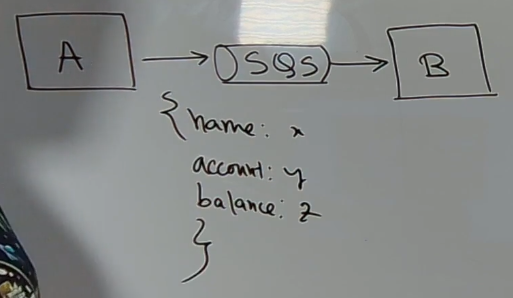 A SQS B
{ name: x
account: y
balance: z
}